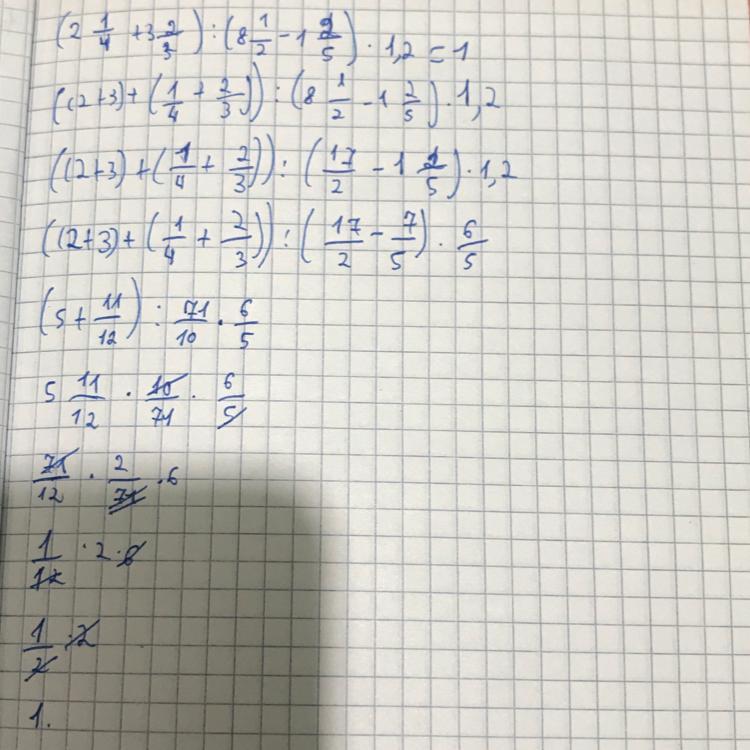 (2 1/4 + 3 2/3) : (8 1/2 - 1 2/5) · 1,2 = 1
((2+3) + (1/4 + 2/3)) : (8 1/2 - 1 2/5) · 1,2
((2+3) + (1/4 + 2/3)) : (17/2 - 1 2/5) · 1,2
((2+3) + (1/4 + 2/3)) : (17/2 - 7/5) · 6/5
(5 + 11/12) : 71/10 · 6/5
5 11/12 · 10/71 · 6/5
71/12 · 2/71 · 6
1/12 · 2 · 6
1/2 · 2
1.